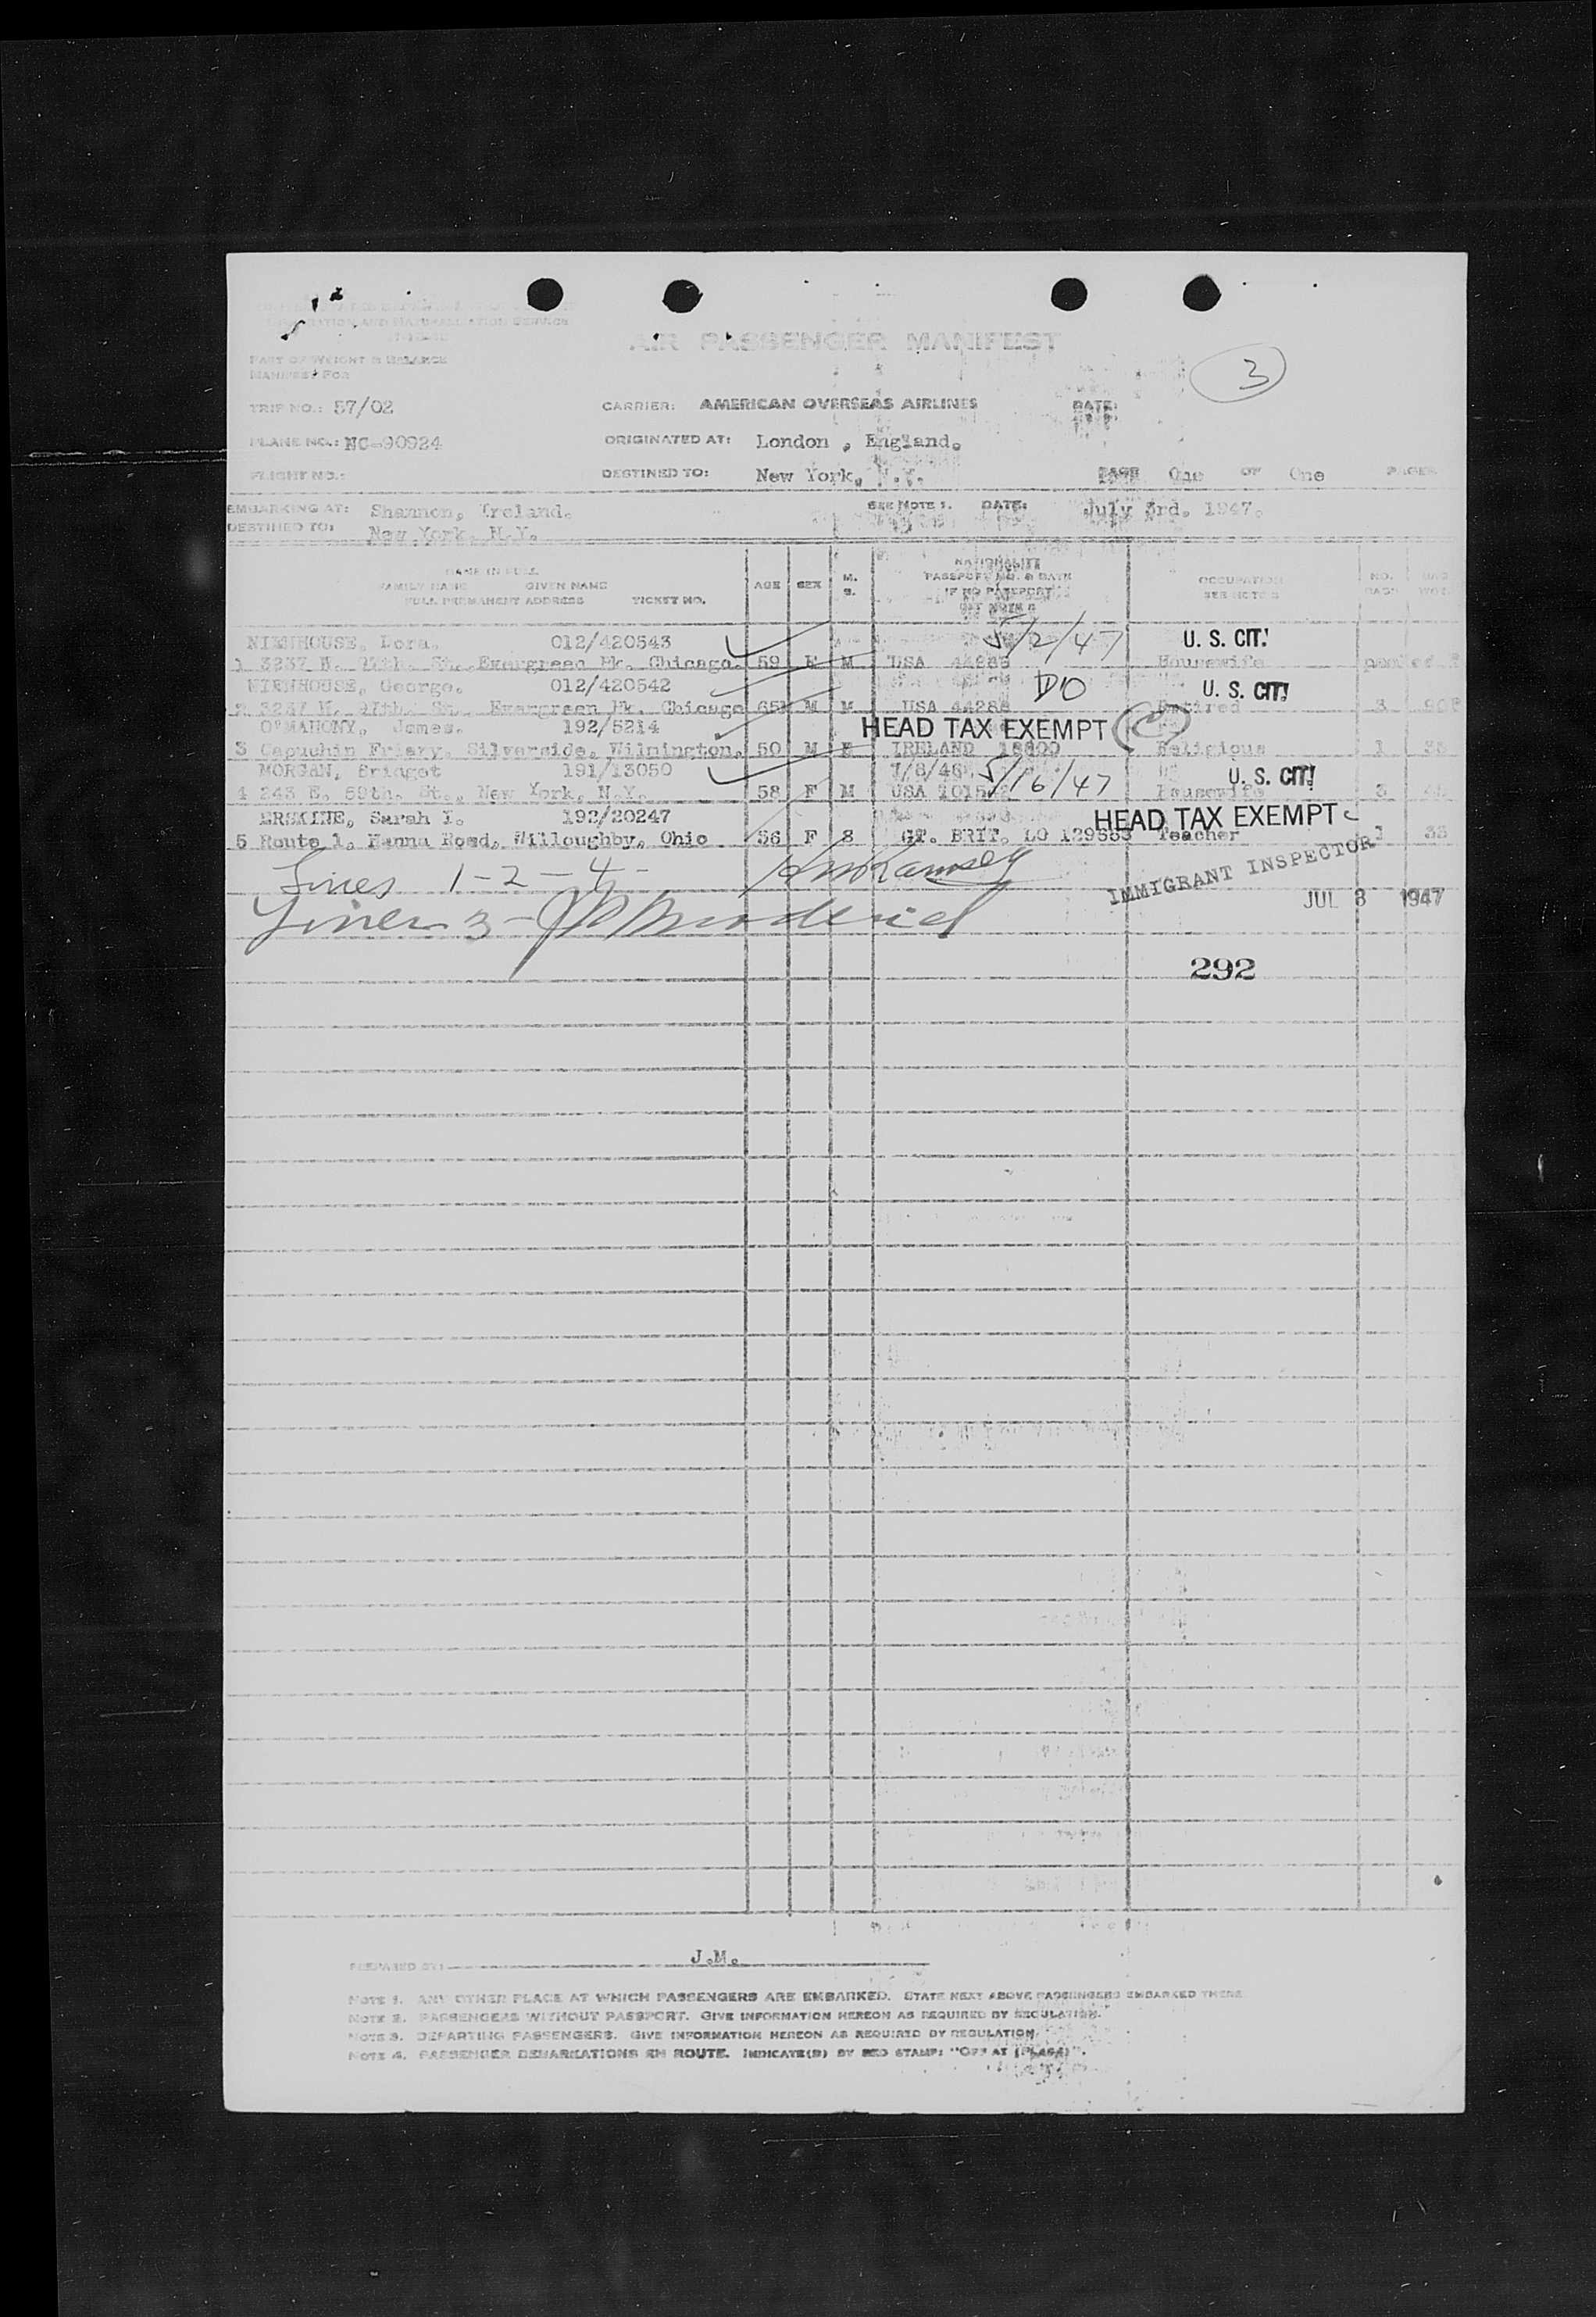 IMMIGRATION AND NATURALIZATION SERVICE
AIR PASSENGER MANIFEST
PART OF WEIGHT & BALANCE
MANIFEST FOR
3
TRIP NO.: 57/02 CARRIER: AMERICAN OVERSEAS AIRLINES DATE:
PLANE NO.: NC-90924 ORIGINATED AT: London , England.
FLIGHT NO.: DESTINED TO: New York, N.Y. PAGE One OF One PAGES
EMBARKING AT: Shannon, Ireland. SEE NOTE 1. DATE: July 3rd. 1947.
DESTINED TO: New York. N.Y.
NAME IN FULL
FAMILY NAME GIVEN NAME
FULL PERMANENT ADDRESS TICKET NO.
AGE SEX M. S.
NATIONALITY
PASSPORT NO. & DATE
IF NO PASSPORT
SEE NOTE 2
OCCUPATION
SEE NOTE 3
NO. BAGS
BAG WGT.
NIENHOUSE, Lora. 012/420543 5/2/47 U. S. CIT.
1 3237 W. 97th. St. Evergreen Pk. Chicago. 59 F M USA 44285 Housewife
NIENHOUSE, George. 012/420542 DO U. S. CIT.
2 3237 W. 97th. St. Evergreen Pk. Chicago 65 M M USA 44286 Retired 3
O'MAHONY, James. 192/5214 HEAD TAX EXEMPT
3 Capuchin Friary, Silverside, Wilmington. 50 M IRELAND 18800 Religious 1
MORGAN, Bridget 191/13050 5/16/47 U. S. CIT.
4 243 E. 59th. St., New York, N.Y. 58 F M USA Housewife 3
ERSKINE, Sarah I. 192/20247 HEAD TAX EXEMPT
5 Route 1, Hanna Road, Willoughby, Ohio 56 F S GT. BRIT. LO 129553 Teacher 1 33
Lines 1-2-4- Ramsey
IMMIGRANT INSPECTOR
JUL 3 1947
Lines 3- Broderick
292
PREPARED BY: J.M.
NOTE 1. ANY OTHER PLACE AT WHICH PASSENGERS ARE EMBARKED. STATE NEXT ABOVE PASSENGERS EMBARKED THERE
NOTE 2. PASSENGERS WITHOUT PASSPORT. GIVE INFORMATION HEREON AS REQUIRED BY REGULATION.
NOTE 3. DEPARTING PASSENGERS. GIVE INFORMATION HEREON AS REQUIRED BY REGULATION.
NOTE 4. PASSENGER DEBARKATIONS EN ROUTE. INDICATE(D) BY RED STAMP: "OFF AT (PLACE)".